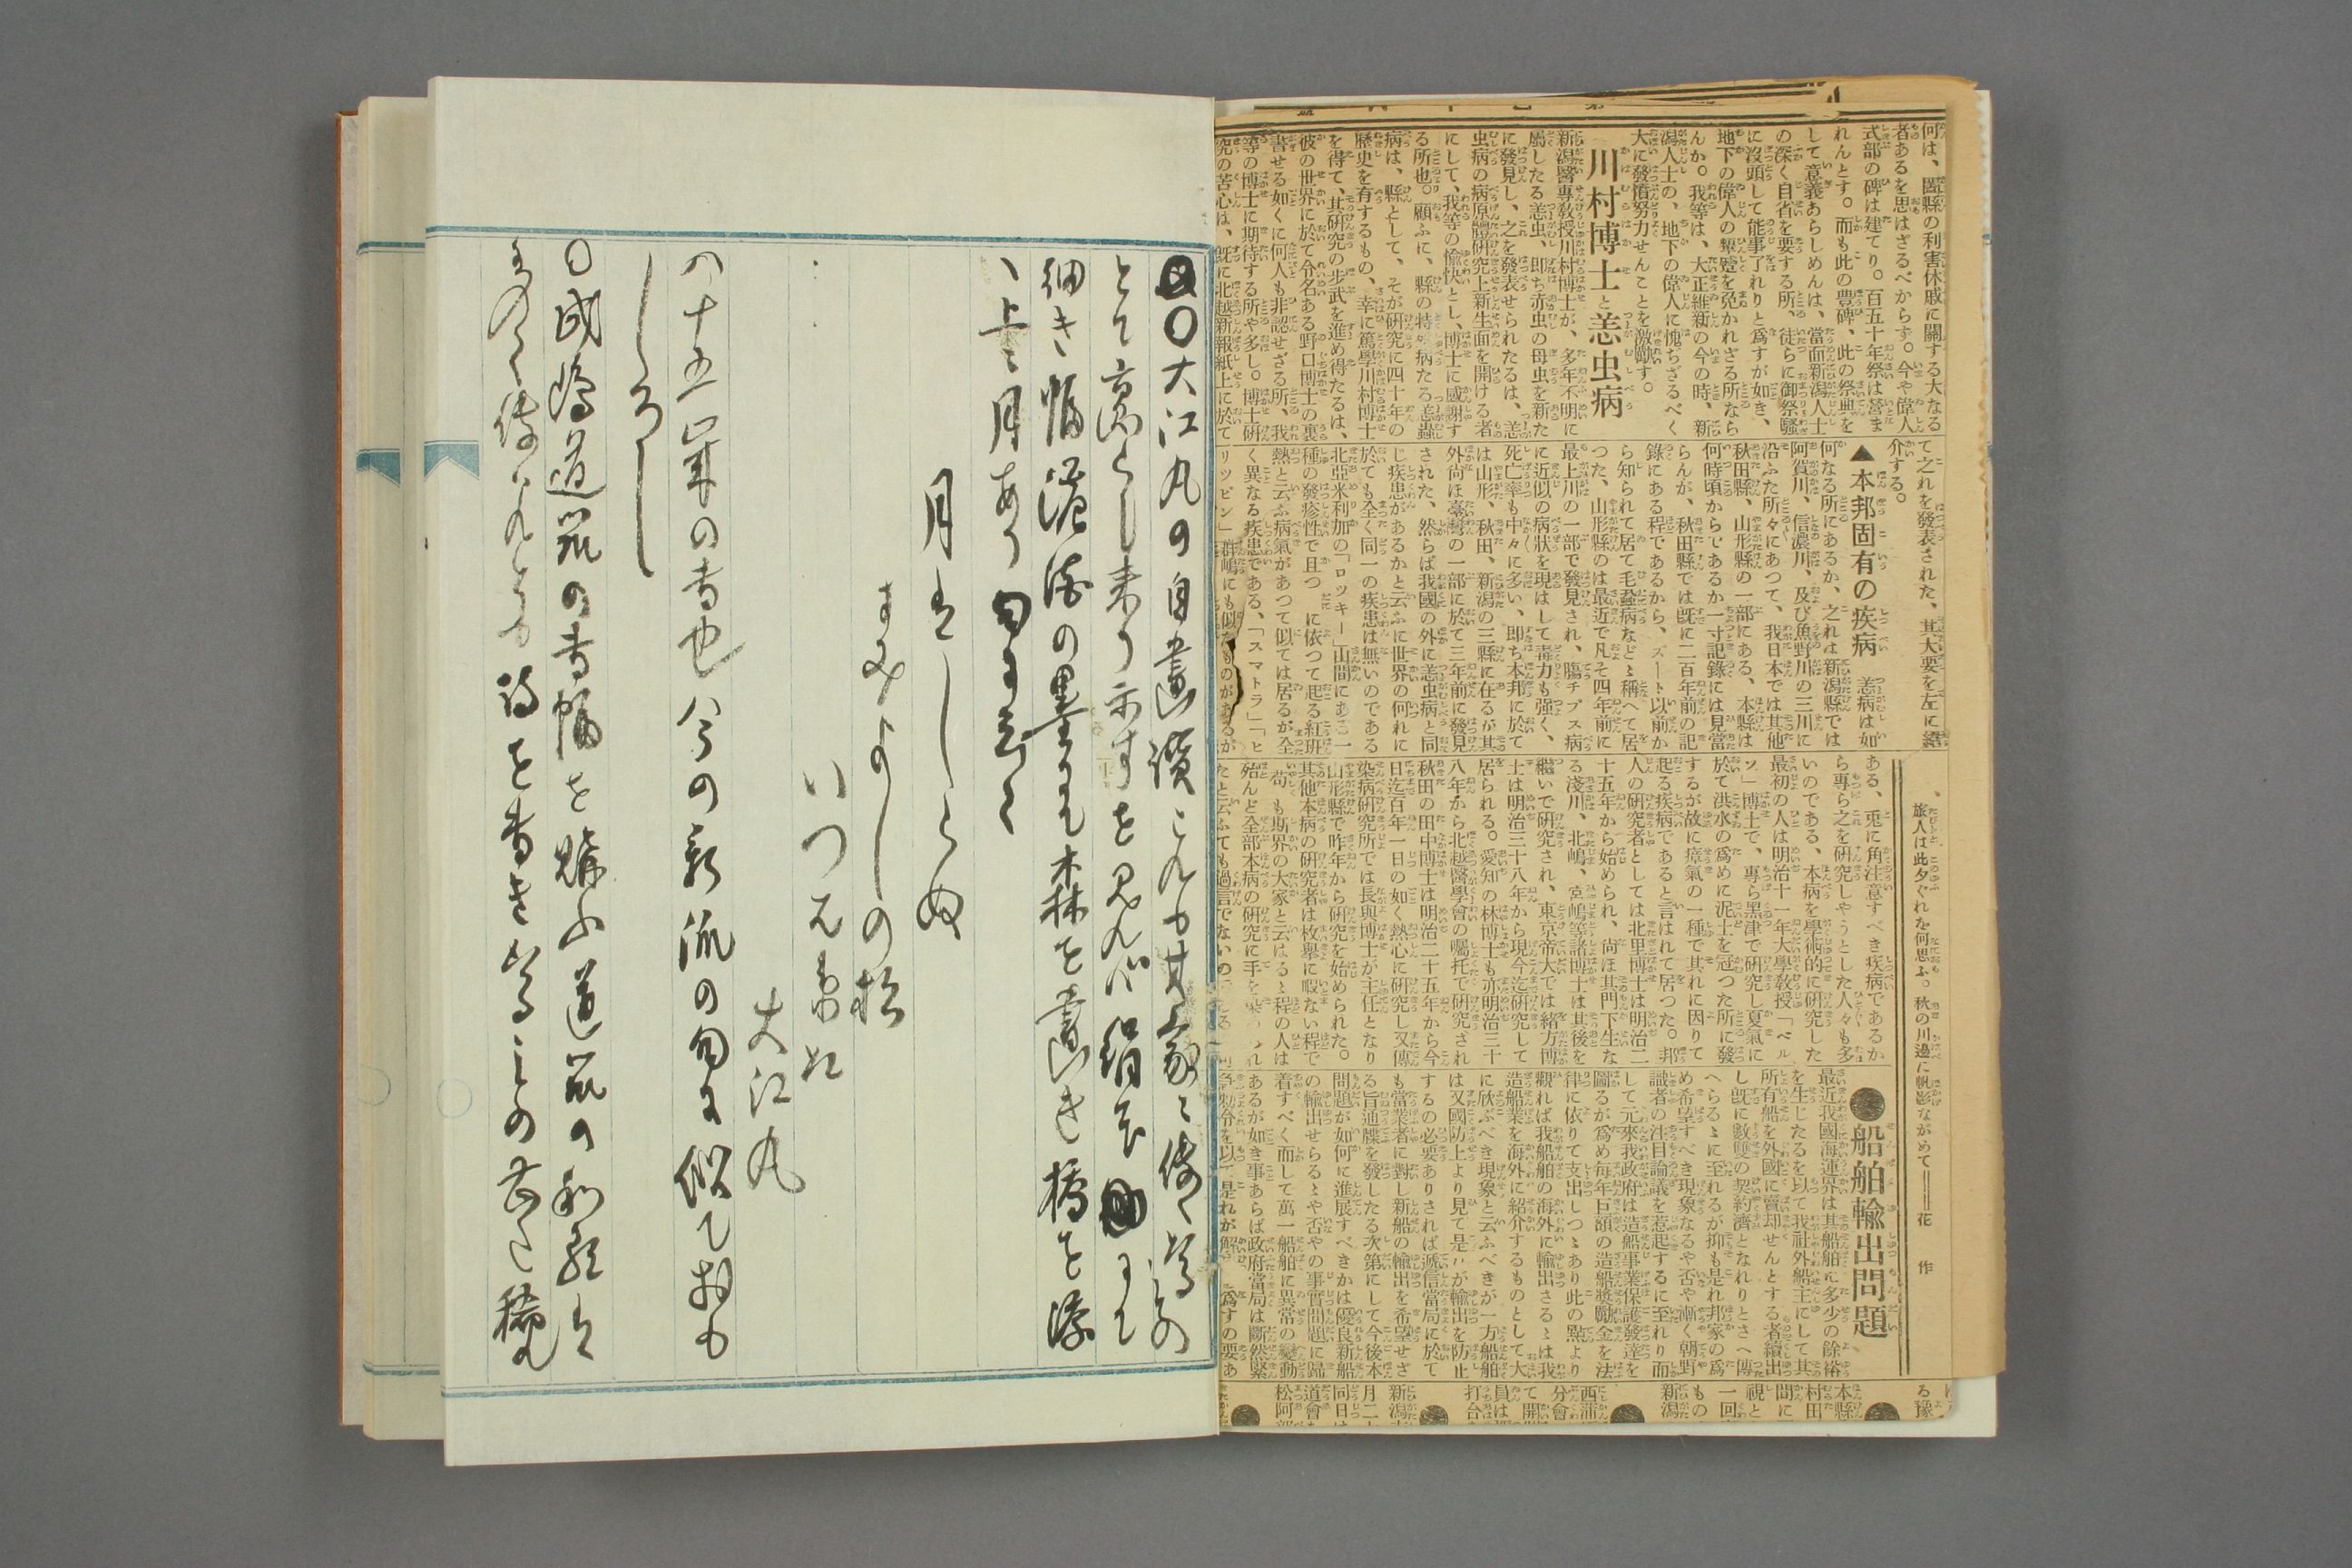 何は、園縣の利害休戚に關する大なる
者あるを思はざるべからず。今や偉人
式部の碑は建てり。百五十年祭は營ま
れんとす。而も此の豊碑、此の祭典を
して意義あらしめんは、當面新潟人士
の深く自省を要する所、徒らに御祭騷
に沒頭して能事了れりと爲すが如き、
地下の偉人の顰蹙を免かれざる所なら
んか。我等は、大正維新の今の時、新
潟人士の、地下の偉人に愧ぢざるべく
大に發憤努力せんことを激勵す。
川村博士と恙虫病
新潟醫專教授川村博士が、多年不明に
屬したる恙虫、即ち赤虫の母虫を新た
に發見し、之を發表せられたるは、恙
虫病の病原體研究上新生面を開ける者
にして、我等の愉快とし、博士に國謝す
る所也。顧ふに、縣の特病たる恙蟲
病は、縣として、そが研究に四十年の
歴史を有するもの、幸に篤學川村博士
を得て、其研究の歩武を進め得たるは、
彼の世界に於て令名ある野口博士の裏
書せる如くに何人も非認せざる所、我
等の博士に期待する所や多し。博士研
究の苦心は、既に北越新報紙上に於て
て之れを發表された、其大要を左に紹
介する。
▲本邦固有の疾病 恙病は如
何なる所にあるか、之れは新潟縣では
阿賀川、信濃川、及び魚野川の三川に
沿ふた所々にあつて、我日本では其他
秋田縣、山形縣の一部にある、本縣は
何時頃からであるか一寸記錄には見當
らんが、秋田縣では既に二百年前の記
錄にある程であるから、ズート以前か
ら知られて居て毛螫病などゝ稱へて居
つた、山形縣のは最近で凡そ四年前に
最上川の一部で發見され、膓チブス病
に近似の病狀を現はして毒力も強く、
死亡率も中々に多い、即ち本邦に於て
は山形、秋田、新潟の三縣に在るが其
外尚ほ臺灣の一部に於て三年前に發見
された、然らば我國の外に恙虫病と同
じ疾患があるかと云ふに世界の何れに
於ても全く同一の疾患は無いのである
北亞米利加の「ロツキー」山間にある一
種の發疹性で且つ に依つて起る紅班
熱と云ふ病氣があつて似ては居るが全
く異なる疾患である、「スマトラ」「ヒ
リツピン」群嶋にも似たものがあるが
旅人は此夕ぐれを何思ふ。秋の川邊に帆影ながめて━━花 作
ある、兎に角注意すべき疾病であるか
ら專ら之を研究しやうとした人々も多
いのである、本病を學術的に研究した
最初の人は明治十一年大學教授「ベル
ツ」博士で、專ら黑津で研究し夏氣に
於て洪水の爲めに泥土を冠つた所に發
するが故に瘴氣の一種で其れに因りて
起る疾病であると言はれて居つた。邦
人の研究者としては北里博士は明治二
十五年から始められ、尚ほ其門下生な
る淺川、北嶋、宮嶋等諸博士は其後を
繼いで研究され、東京帝大では緒方博
士は明治三十八年から現今迄研究して
居られる。愛知の林博士も亦明治三十
八年から北越醫學會の囑托で研究され
秋田の田中博士は明治二十五年から今
日迄百年一日の如く熱心に研究し又傳
染病研究所では長與博士が主任となり
山形縣で昨年から研究を始められた。
其他本病の研究者は枚擧に暇ない程で
苟も斯界の大家と云はるゝ程の人は
殆んど全部本病の研究に手を染
たと云ふても過言でないの
●船舶輸出問題
最近我國海運界は其船舶に多少の餘裕
を生じたるを以て我社外船主にして其
所有船を外國に賣却せんとする者續出
し既に數隻の契約濟となれりとさへ傳
へらるゝに至れるが抑も是れ邦家の爲
め希望すべき現象なるや否や漸く朝野
識者の注目論議を惹起するに至れり而
して元來我政府は造船事業保護發達を
圖るが爲め毎年巨額の造船奬勵金を法
律に依りて支出しつゝあり此の點より
觀れば我船舶の海外に輸出さるゝは我
造船業を海外に紹介するものとして大
に欣ぶべき現象と云ふべきが一方船舶
は又國防上より見て是が輸出を防止
するの必要ありされば遞信當局に於て
も當業者に對し新船の輸出を希望せざ
る旨通牒を發したる次第にして今後本
問題が如何に進展すべきかは優良新船
の輸出せらるゝや否やの事實問題に歸
着すべく而して萬一船舶に異常の變動
あるが如き事あらば政府當局は斷然緊
急勅令を以て是れが解 爲すの要あ
る豫
本縣
村田
問に
視と
一回
もの
新潟
西蒲
分會
て開
員は
打合
新潟
月二
同日
道會
松阿
○大江丸の自畫讃これカ其家に傳
とて京とし来り示すを見れハ絹本
細き幅淡彩の墨にて森を畫き橋を添
へ上に月あり句に云く
月はしらぬ
すみよしの松
いつ
大江丸
八十五歳の書也今の新流の句に似ておも
しろし
○成嶋道筑の書幅を購ふ道筑の
傳 詩を書き の甚た稀也